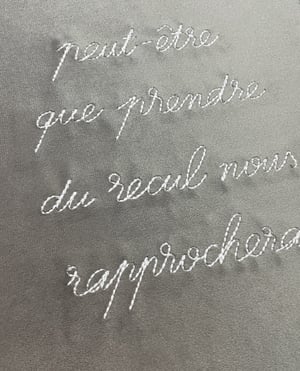 peut-être
que prendre
du recul nous
rapprochera